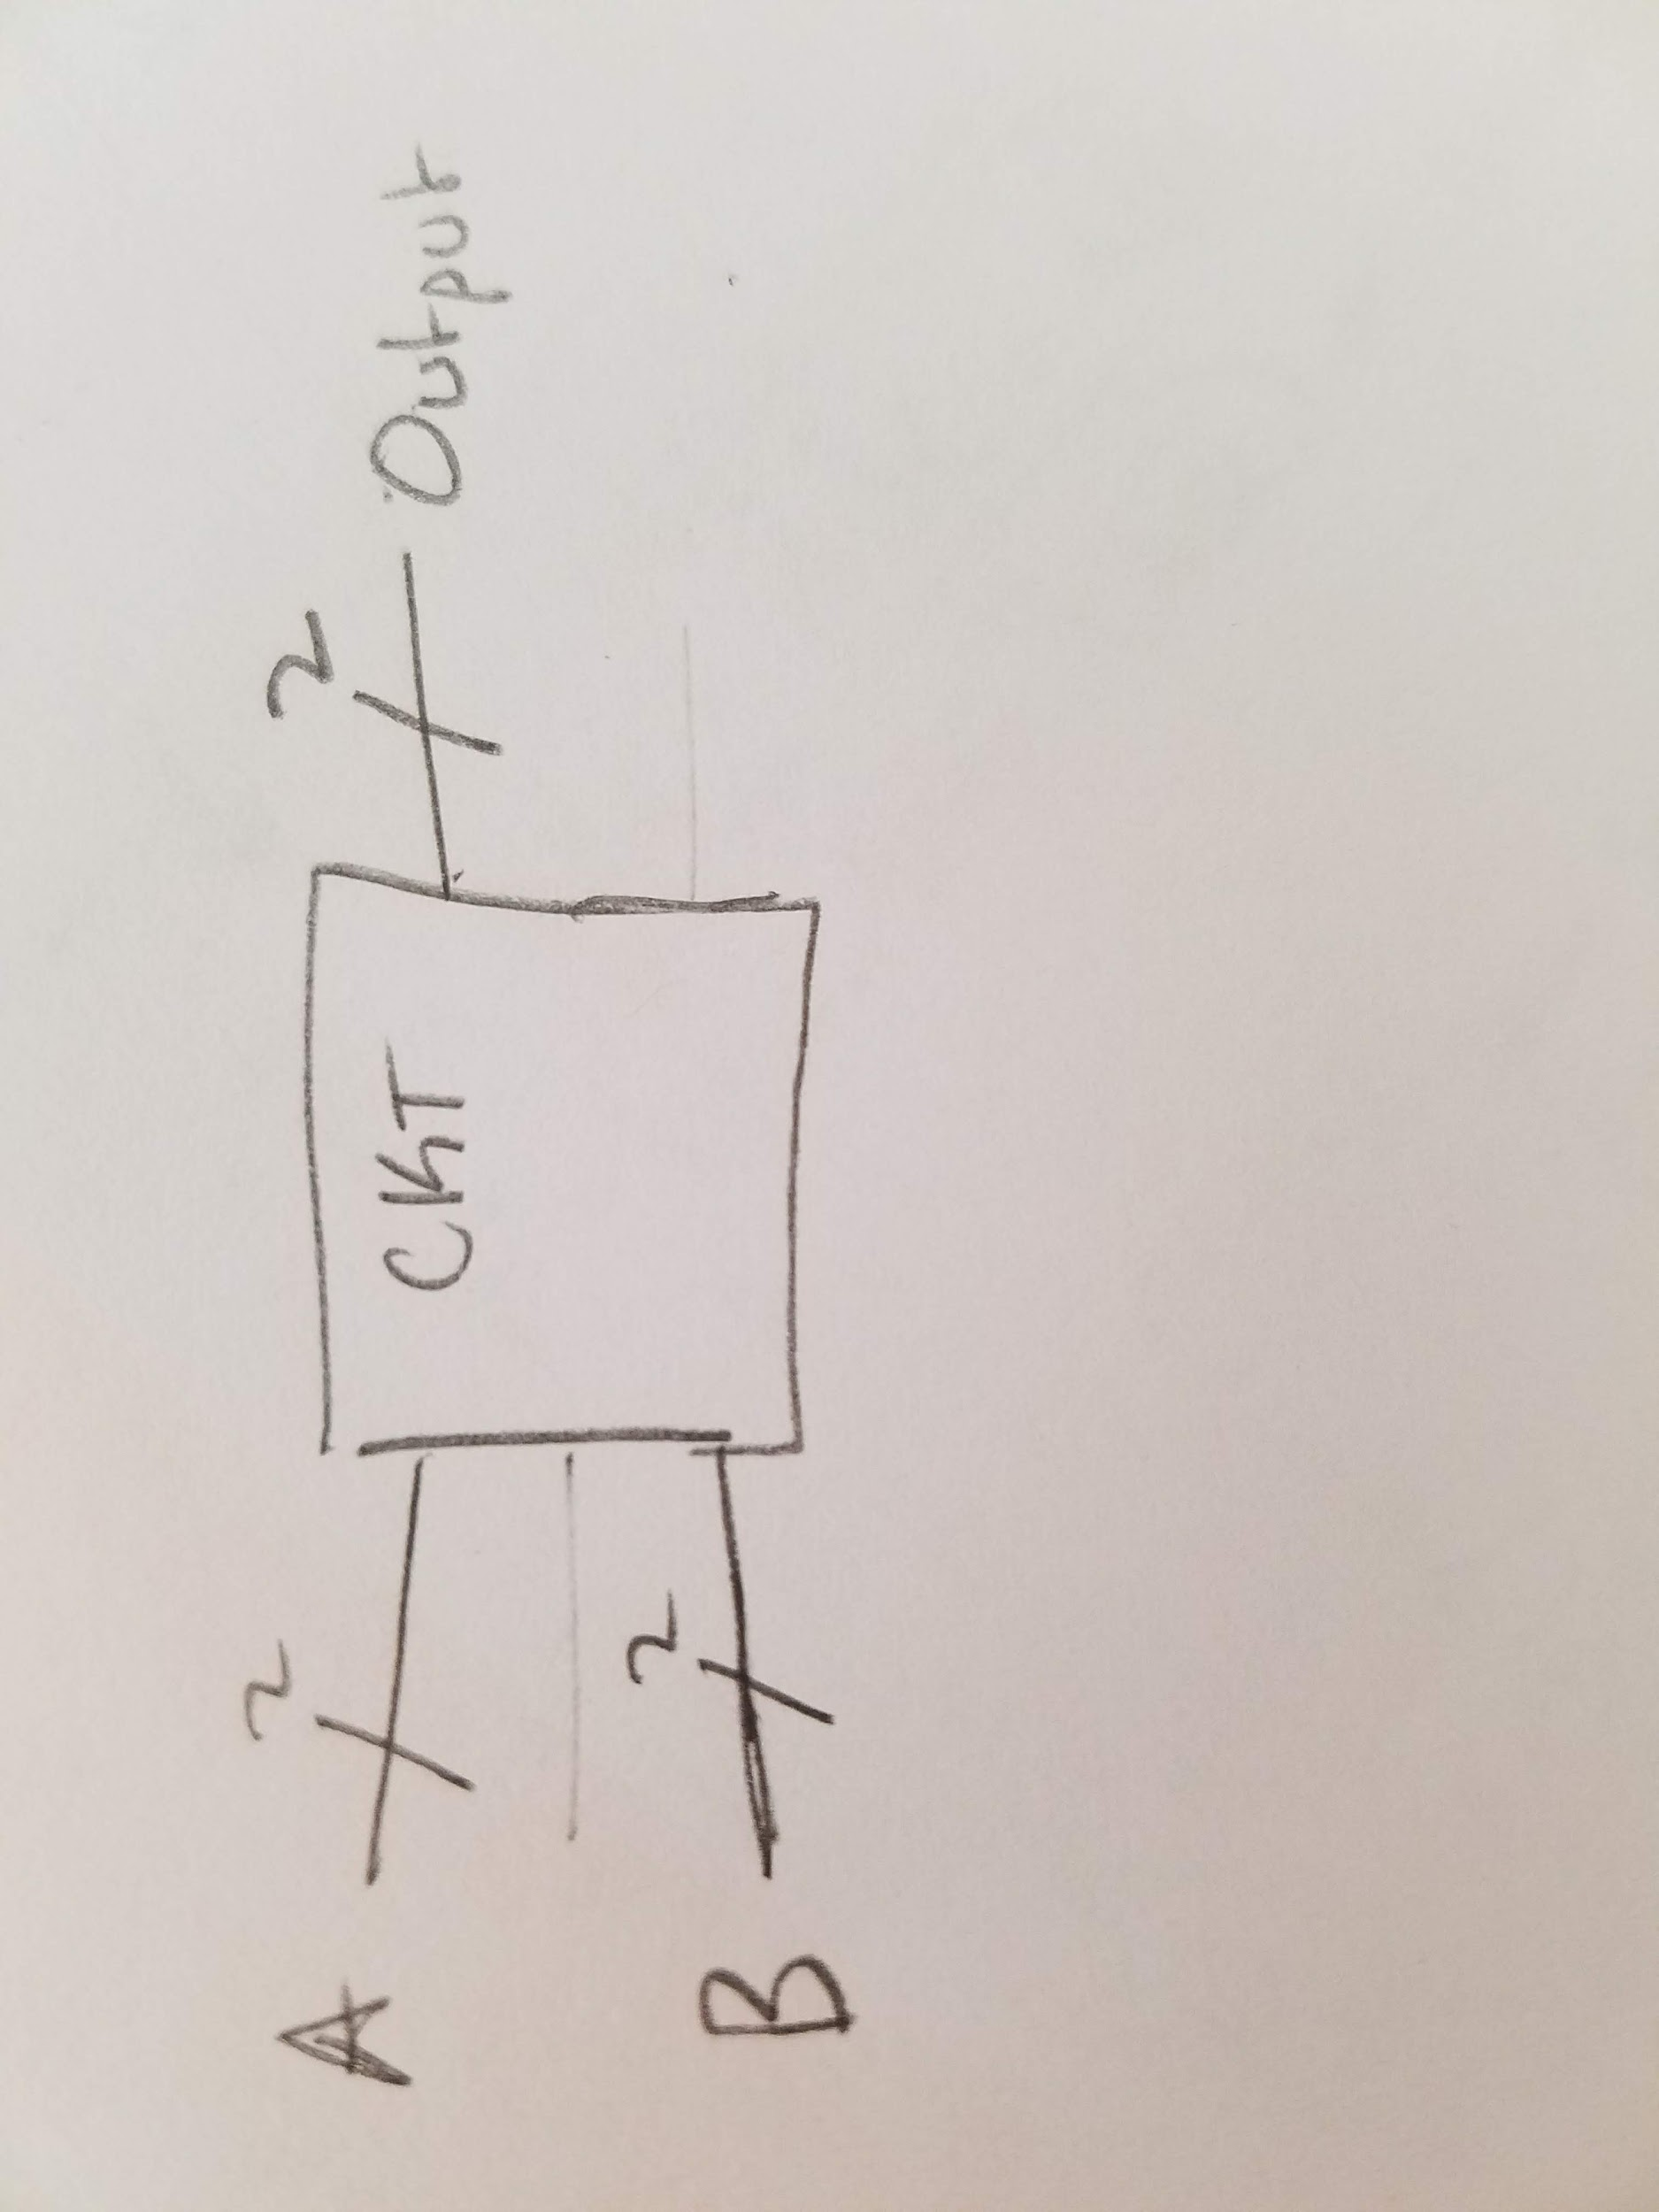 A
2
B
2
CKT
2
Output